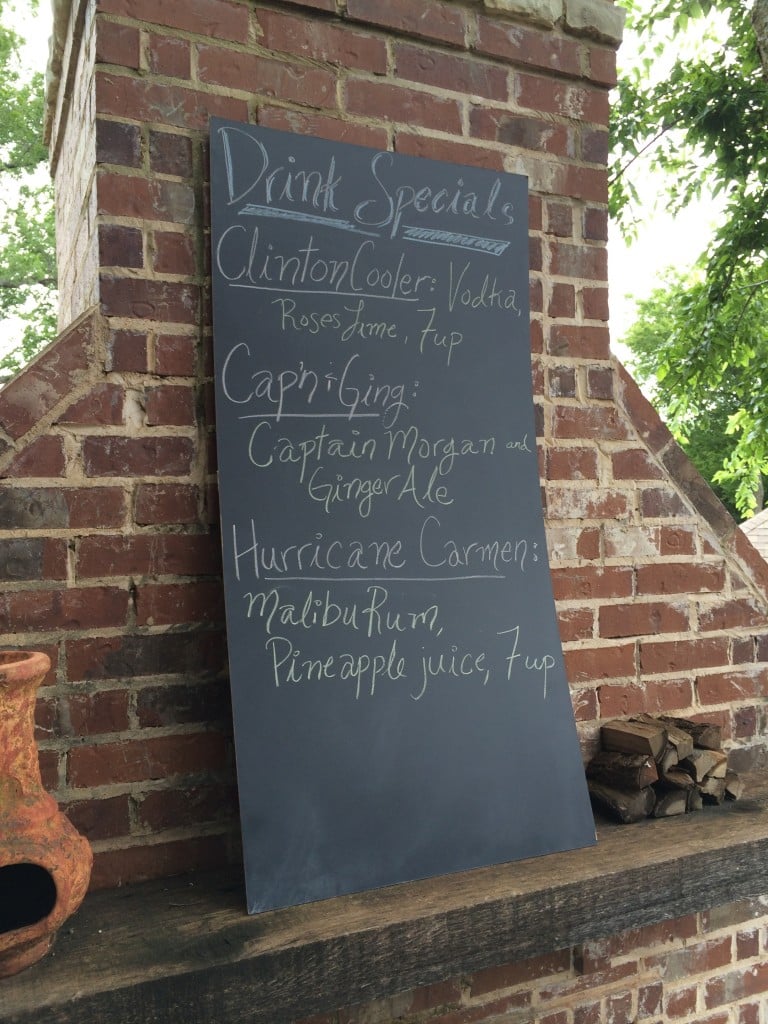 Drink Specials
Clinton Cooler: Vodka,
Roses Lime, 7up
Cap'n & Ging:
Captain Morgan and
Ginger Ale
Hurricane Carmen:
Malibu Rum,
Pineapple juice, 7up